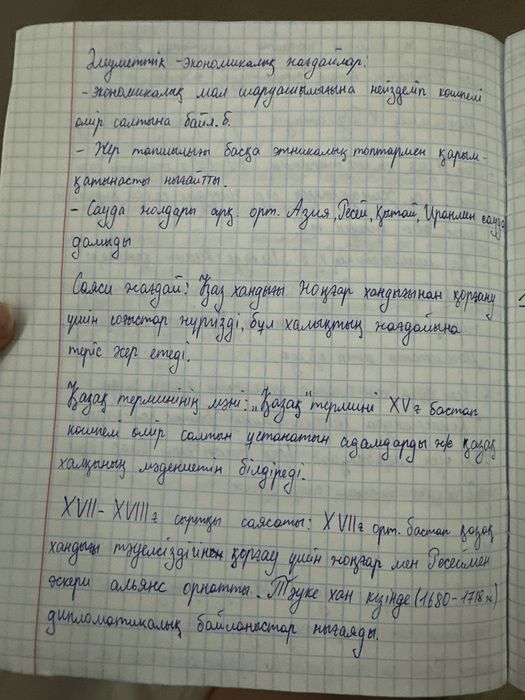 Әлеуметтік - экономикалық жағдайлар:
- Экономикалық мал шаруашылығына негізделіп көшпелі
өмір салтына байл. б.
- Жер тапшылығы басқа этникалық топтармен қарым-
қатынасты нығайтты.
- Сауда жолдары арқ. орт. Азия, Ресей, Қытай, Иранмен сауда
дамыды
Саяси жағдай: Қаз хандығы Жоңғар хандығынан қорғану
үшін соғыстар жүргізді, бұл халықтың жағдайына
теріс әсер етеді.
Қазақ терминінің мәні: „Қазақ" термині XV ғ бастап
көшпелі өмір салтын ұстанатын адамдарды және қазақ
халқының мәдениетін білдіреді.
XVII - XVIII ғ сыртқы саясаты: XVII ғ орт. бастап қазақ
хандығы тәуелсіздігінін қорғау үшін жоңғар мен Ресеймен
әскери альянс орнатты. Тәуке хан кезінде (1680 - 1718 ж)
дипломатикалық байланыстар нығаяды.